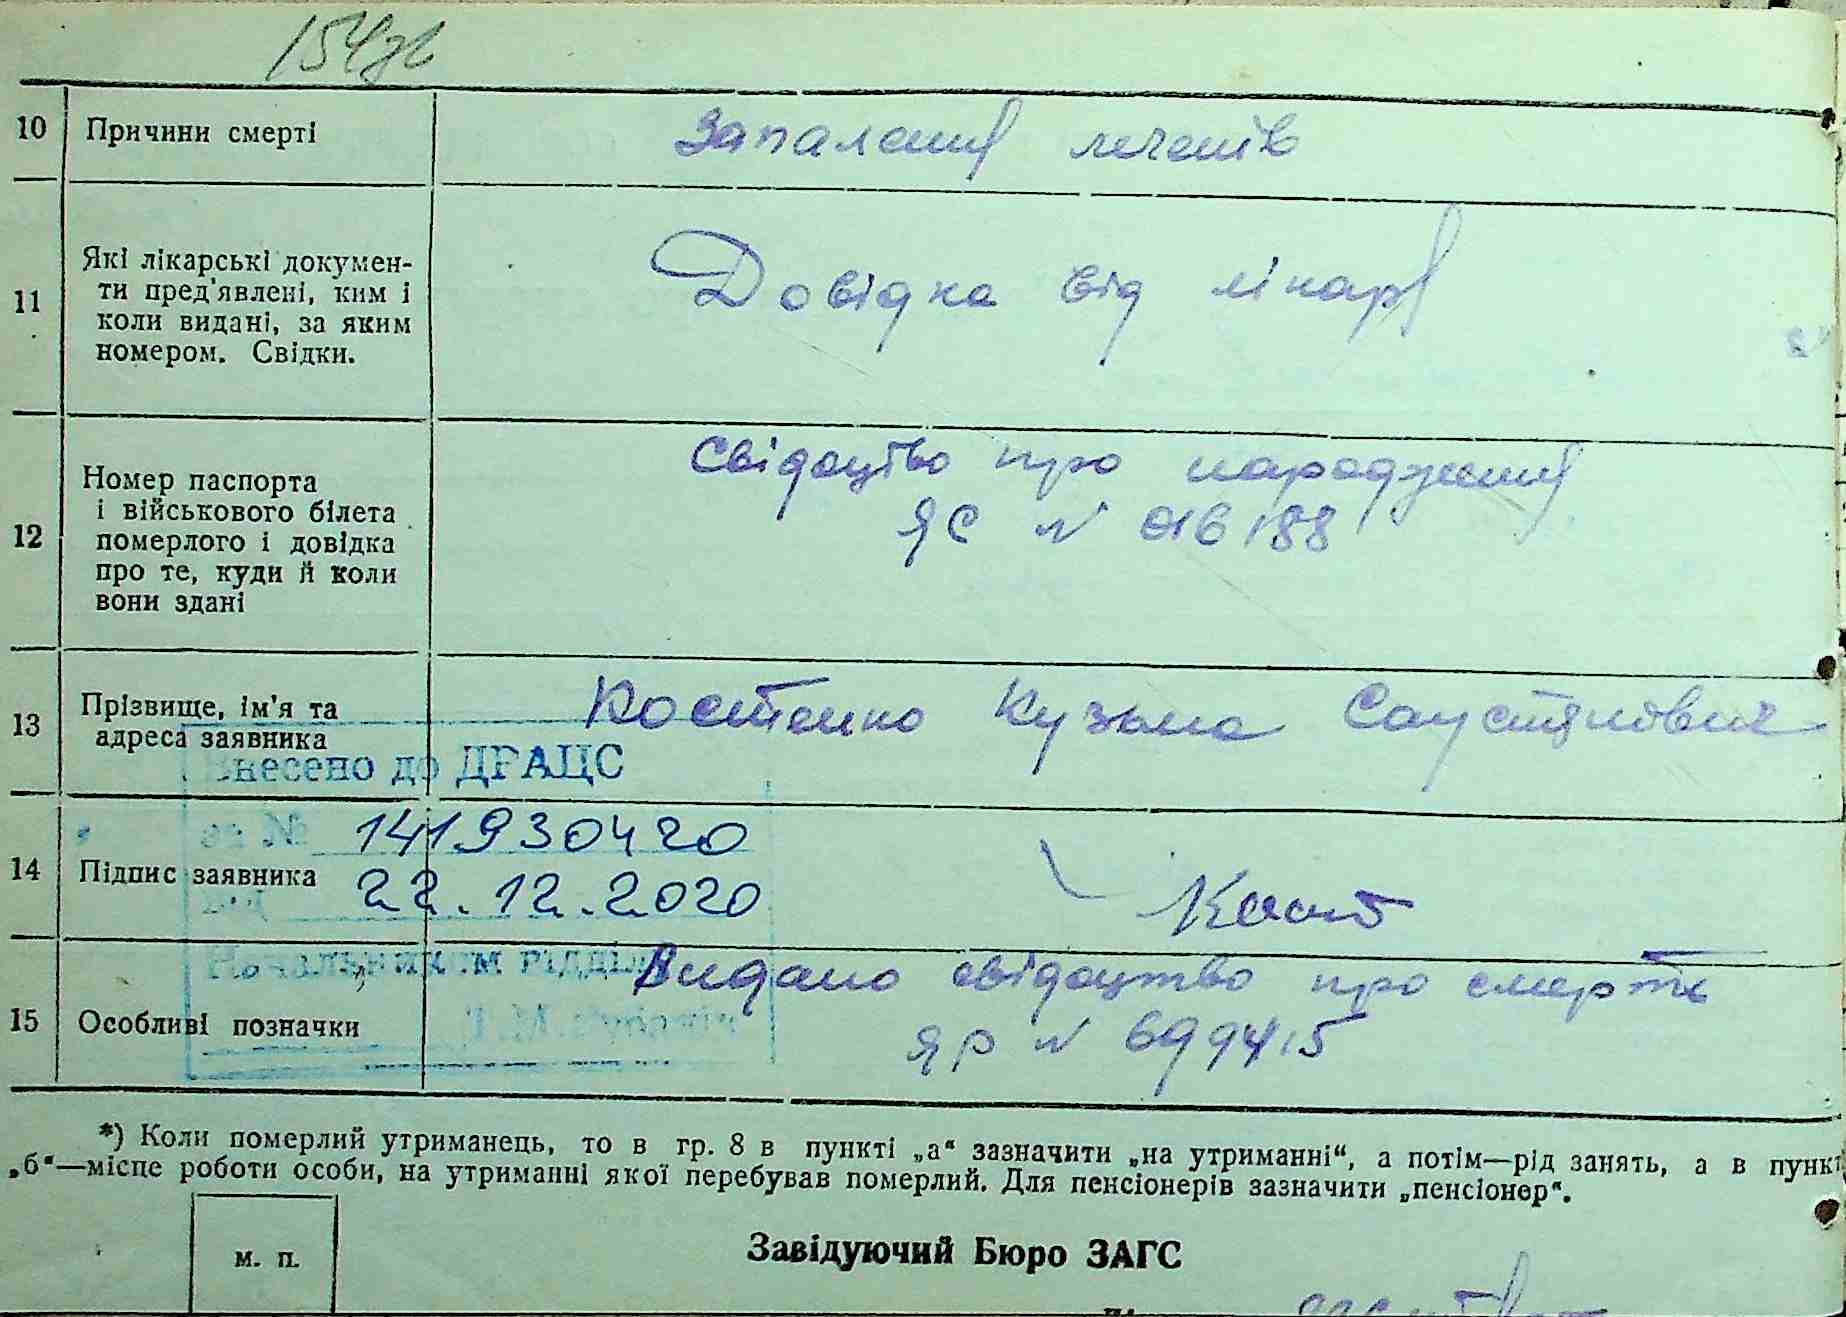 154
10 Причини смерті Запалення легенів
11 Які лікарські докумен-
ти пред'явлені, ким і
коли видані, за яким
номером. Свідки.
Довідка від лікаря
12 Номер паспорта
і військового білета
померлого і довідка
про те, куди й коли
вони здані
Свідоцтво про народження
ЯС N 016188
13 Прізвище, ім'я та
адреса заявника
Костенко Кузьма Саустянович
Внесено до ДРАЦС
за № 141930420
14 Підпис заявника
від 22.12.2020
Кост
Начальником відділу
15 Особливі позначки
Видано свідоцтво про смерть
ЯР N 699415
*) Коли померлий утриманець, то в гр. 8 в пункті „а“ зазначити „на утриманні“, а потім—рід занять, а в пункт
„б“—місце роботи особи, на утриманні якої перебував померлий. Для пенсіонерів зазначити „пенсіонер“.
м. п.
Завідуючий Бюро ЗАГС